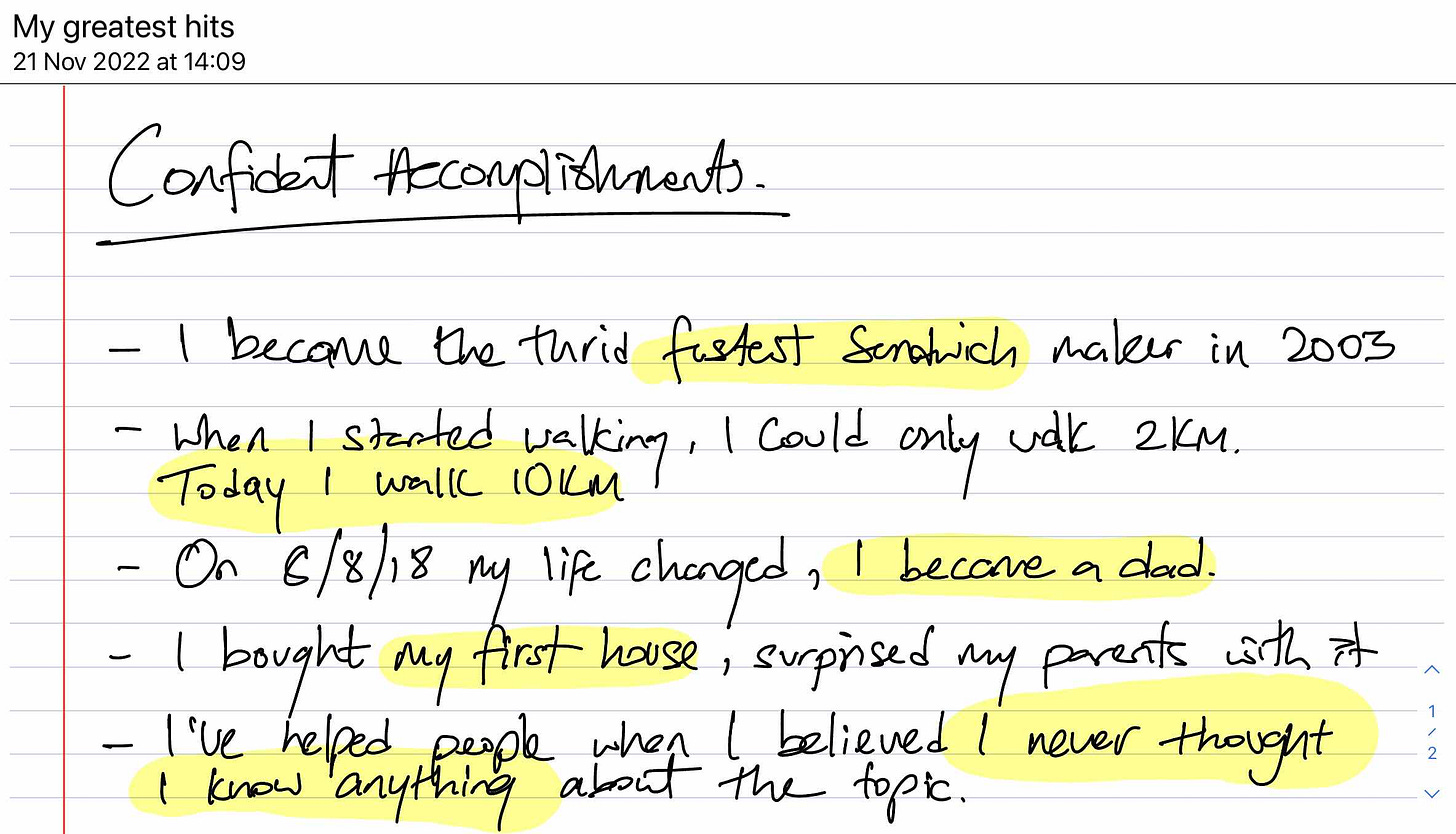 My greatest hits
21 Nov 2022 at 14:09
Confident Accomplishments.
- I became the thrid fastest Sandwich maker in 2003
- When I started walking, I Could only walk 2KM.
Today I walk 10KM
- On 8/8/18 my life changed, I became a dad.
- I bought my first house, surprised my parents with it
- I've helped people when I believed I never thought
I know anything about the topic.
1
/
2